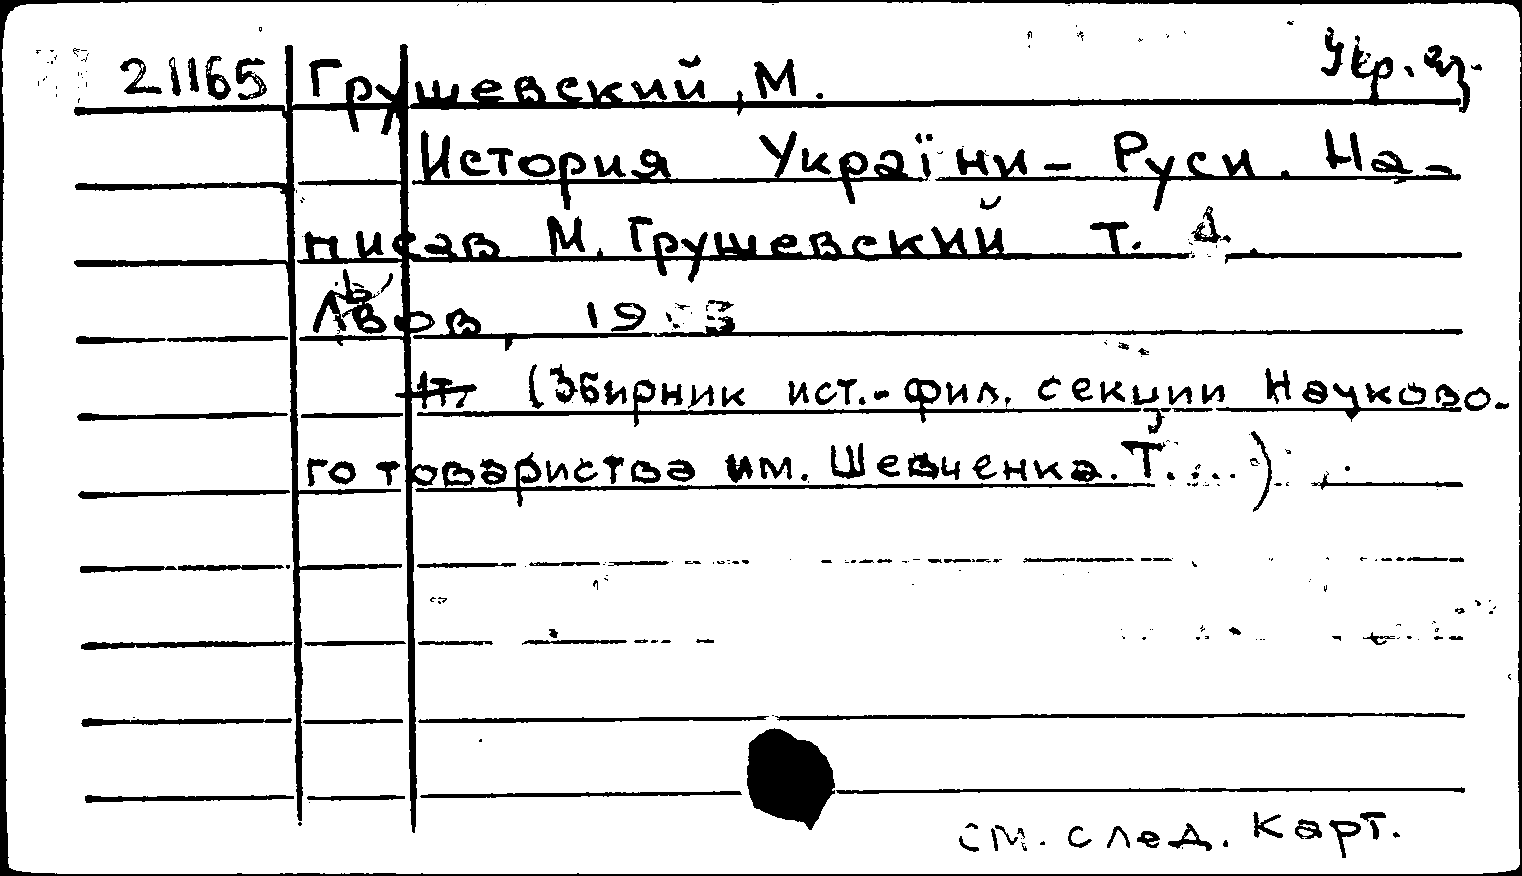 21165 Грушевский, М. Укр. яз.
История України- Руси. На-
писав М. Грушевский Т.
Львов, 19
1т. (Збирник ист.-фил. секции Науково-
го товариства им. Шевченка. Т....)
см. след. карт.